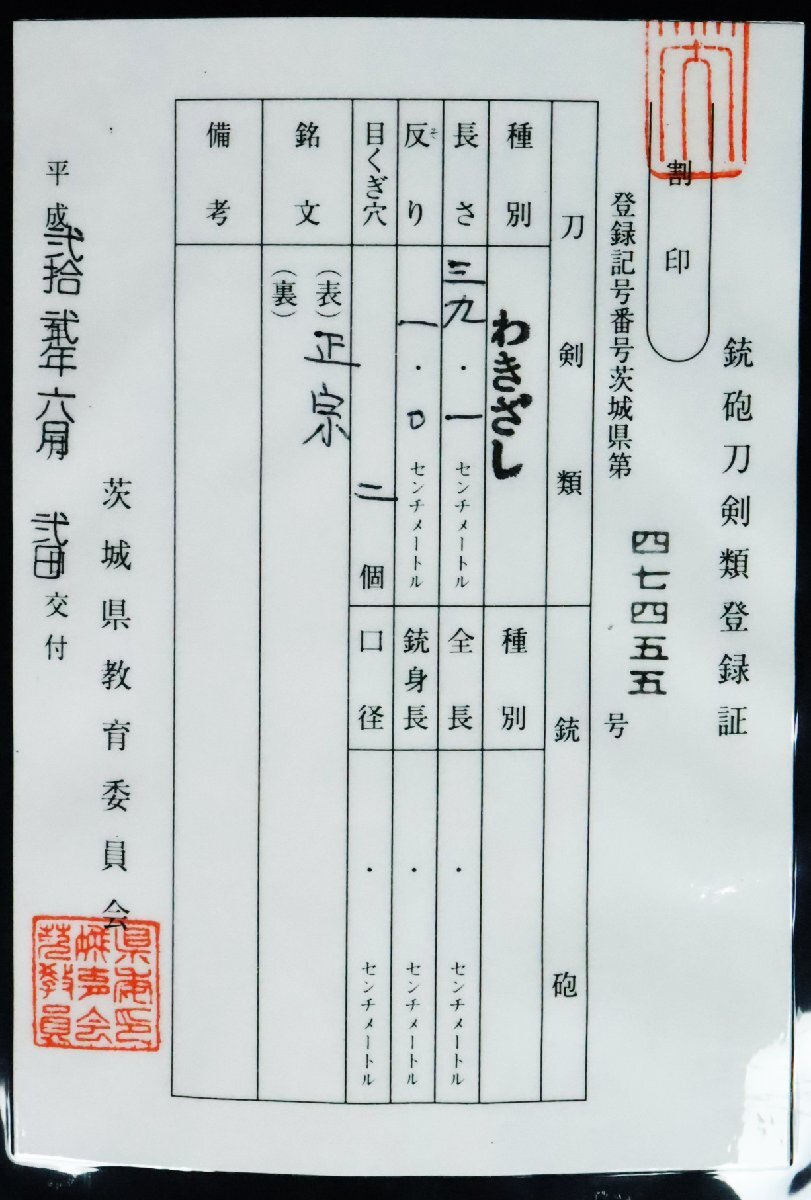 銃砲刀剣類登録証
割印
登録記号番号茨城県第四七四五五号
刀剣類
種別 わきざし
長さ 三九・一センチメートル
反り 一・〇センチメートル
そ
目くぎ穴 二個
銘文 (表)正宗
(裏)
備考
銃砲
種別
全長 ・センチメートル
銃身長 ・センチメートル
口径 ・センチメートル
平成弐拾弐年六月弐日交付
茨城県教育委員会